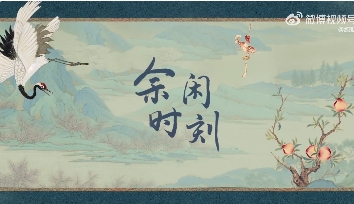 微博视频号
余闲
时刻